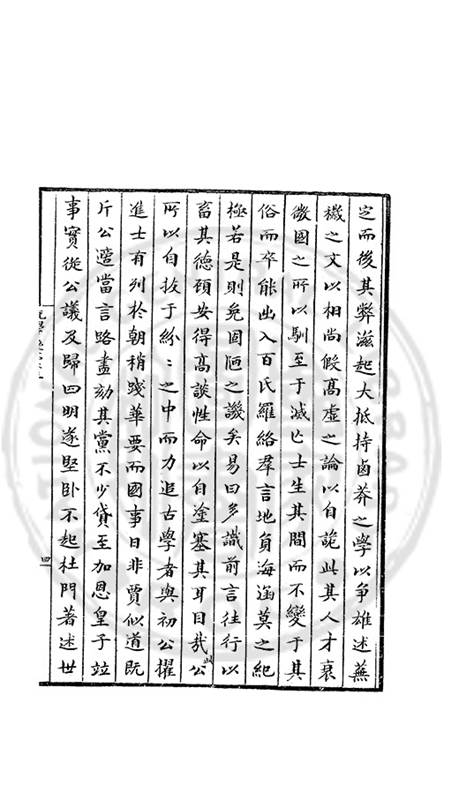 定而後其弊滋起大抵持鹵莽之學以争雄述蕪
穢之文以相尚假髙虚之論以自詭此其人才衰
微國之所以馴至于滅亡士生其間而不變于其
俗而卒能出入百氏羅絡羣言地負海涵莫之紀
極若是則免固陋之譏矣易曰多識前言往行以
畜其德頋安得高談性命以自塗塞其耳目哉此公
所以自拔于紛〻之中而力追古學者與初公擢
進士有列於朝稍踐華要而國事日非賈似道既
斥公遷當言路盡劾其黨不少貸至加恩皇子竝
事實從公議及歸四明遂堅卧不起杜門著述世
四